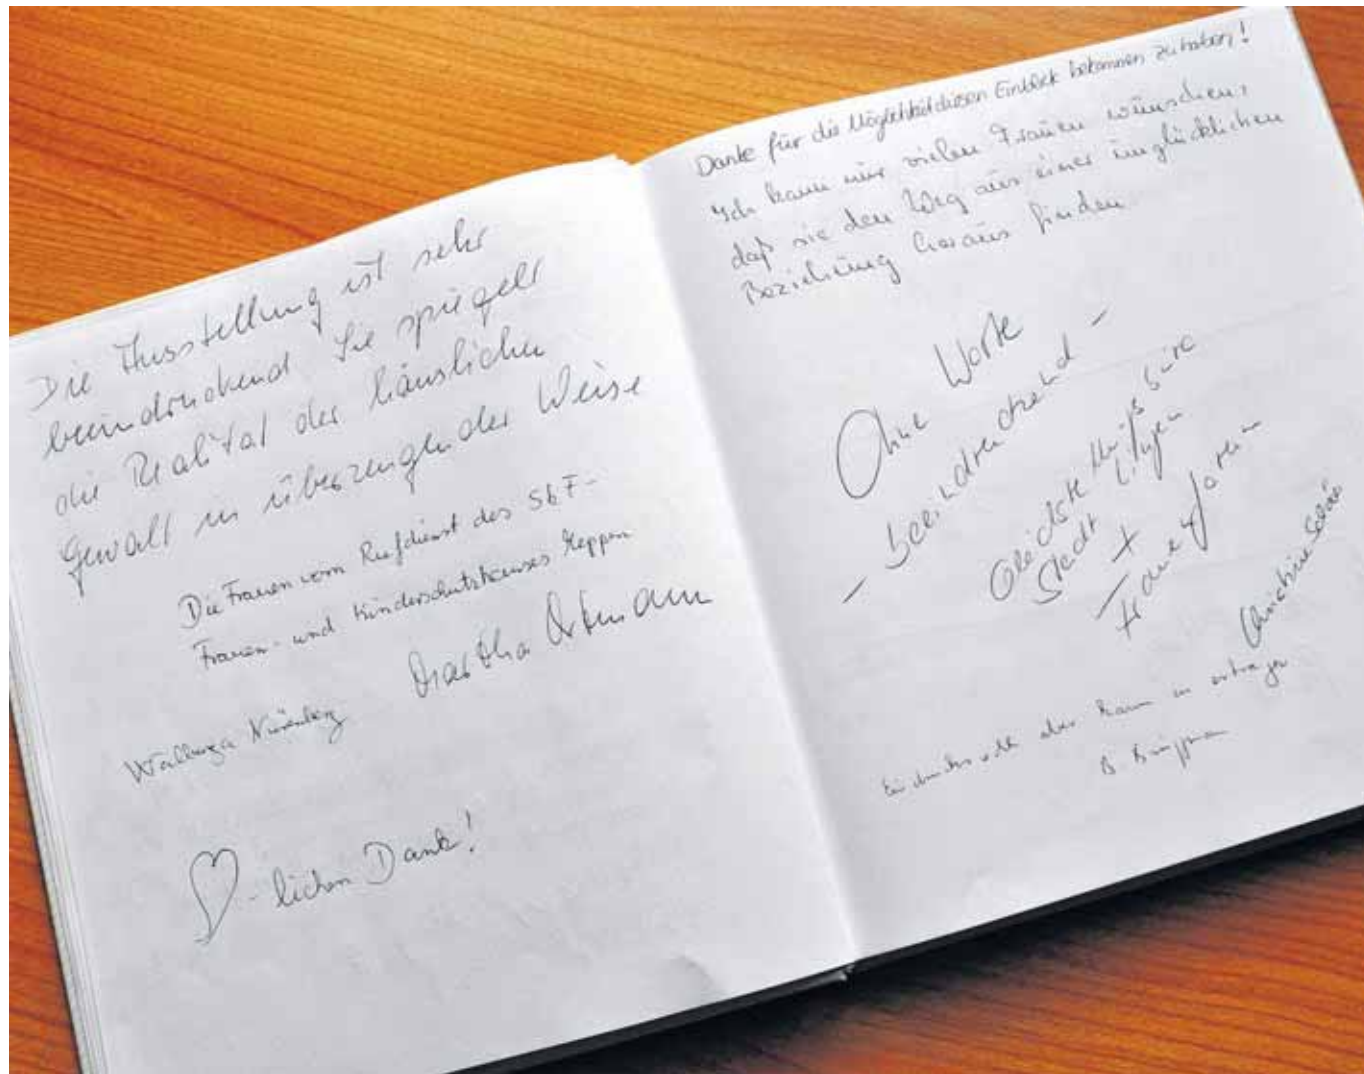 Die Ausstellung ist sehr
beeindruckend Sie spiegelt
die Realität der häuslichen
Gewalt in überzeugender Weise
Die Frauen vom Rufdienst des SkF-
Frauen- und Kinderschutzhauses Meppen
Martha
Walburga Nürenberg
-lichen Dank!
Danke für die Möglichkeit diesen Einblick bekommen zu haben!
Ich kann nur vielen Frauen wünschen,
daß sie den Weg aus einer unglücklichen
Beziehung heraus finden
Ohne Worte
- beeindruckend -
Gleichstellungsbüro
Stadt Lingen
+
Frauenforum
Christine
Eindrucksvoll aber kaum zu ertragen
B.